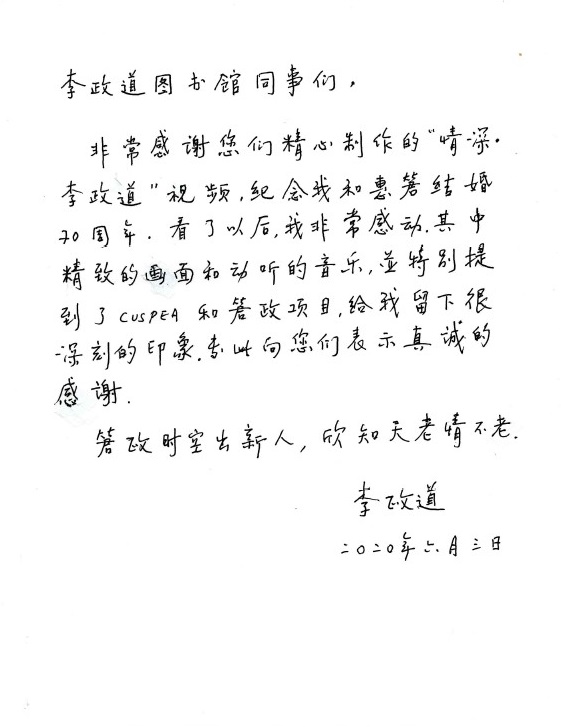 李政道图书馆同事们，
非常感谢您们精心制作的“情深·
李政道”视频，纪念我和惠䇹结婚
70周年．看了以后，我非常感动．其中
精致的画面和动听的音乐，并特别提
到了CUSPEA和䇹政项目，给我留下很
深刻的印象．专此向您们表示真诚的
感谢．
䇹政时空出新人，欣知天老情不老．
李政道
二〇二〇年六月三日